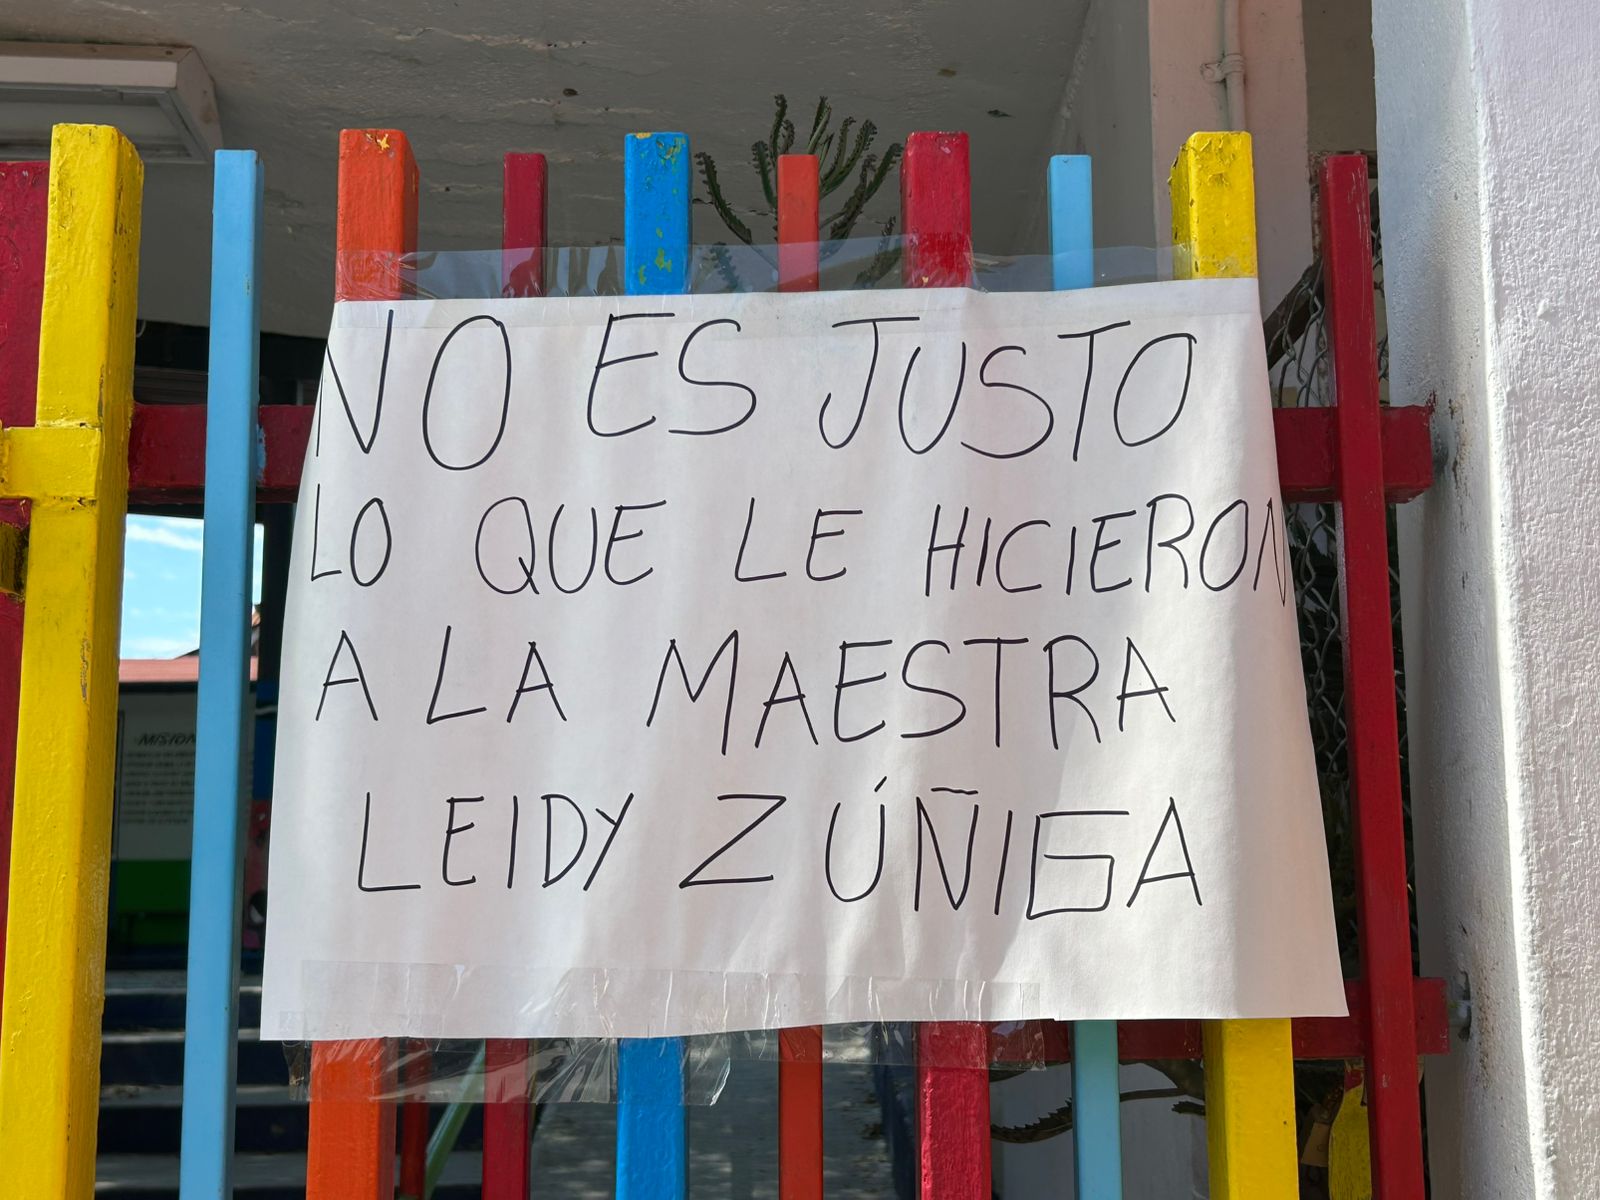 NO ES JUSTO
LO QUE LE HICIERON
A LA MAESTRA
LEIDY ZÚÑIGA
MISION